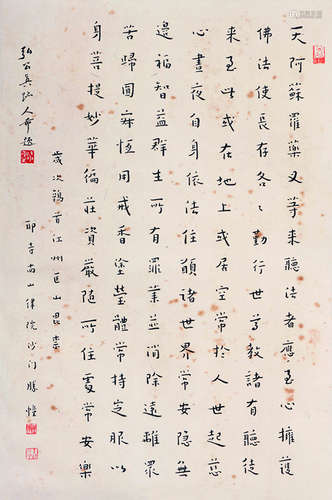 天阿蘇羅藥叉等來聽法者應至心擁護
佛法使長存各々勤行世尊教諸有聽徒
來至此或在地上或居空常於人世起慈
心晝夜自身依法住願諸世界常安隱無
邊福智益群生所有罪業並消除遠離眾
苦歸圓寂恆用戒香塗瑩體常持定服以
身菩提妙華徧莊資嚴隨所住處常安樂
歲次鶉首江州匡山
尚山律院沙門勝憧
弘公真